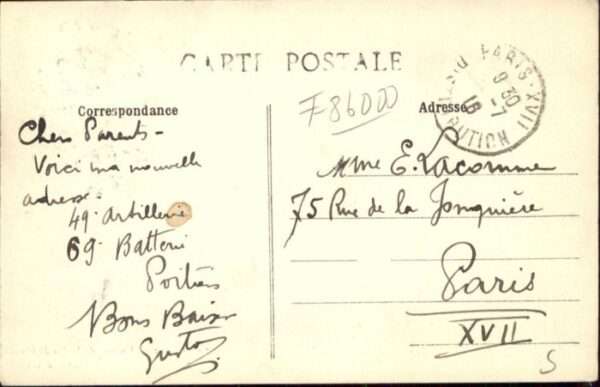 CARTE POSTALE
Correspondance
Chers Parents -
Voici ma nouvelle
adresse -
49e Artillerie
69e Batterie
Poitiers
Bons Baisers
F86000
Adresse
PARIS XVII
DISTRIBUTION
9 30
-7
16
Mme E. Lacomme
75 Rue de la Jonquière
Paris
XVII
S